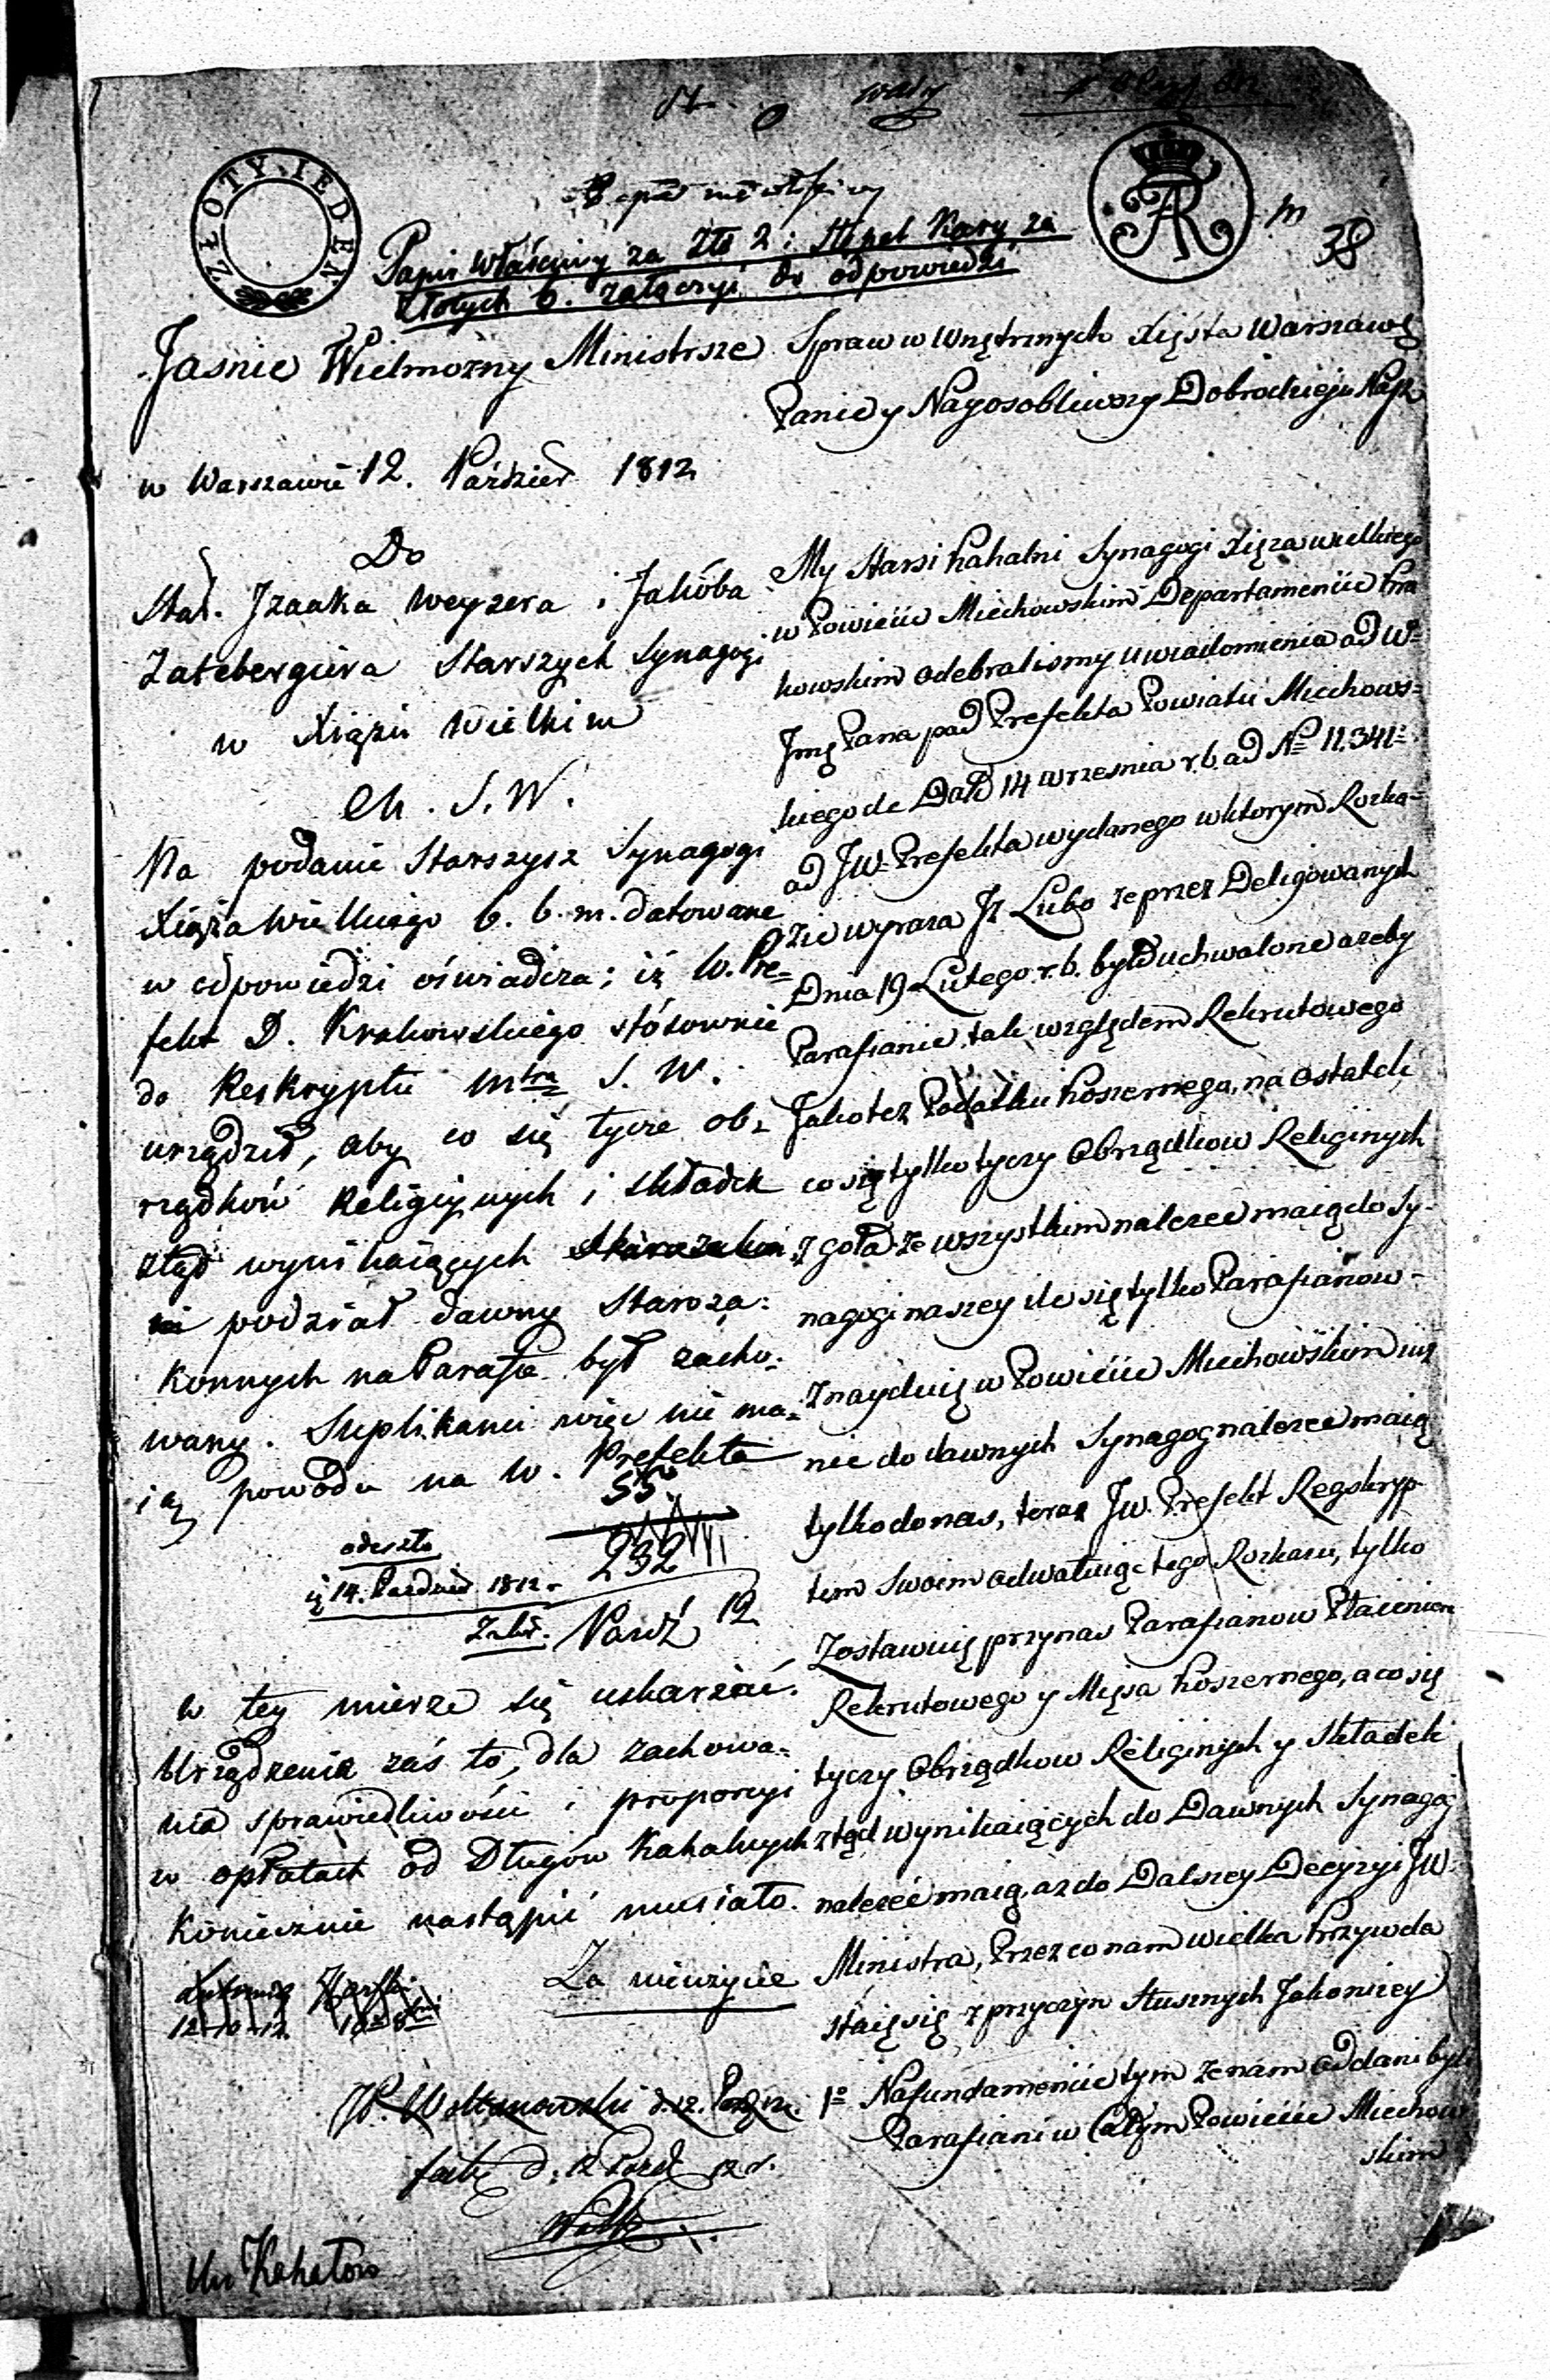 ZŁOTY IEDEN
38
Papier właściwy za Złł 2 i Stępel Kary za
Złotych 6. załączyć do odpowiedzi
Jasnie Wielmozny Ministrze Spraw Wnętrznych Xięsta Warszaws
Panie y Nayosobliwszy Dobrodzieju Nasz
w Warszawie 12. Paździer 1812
Do
Star. Izaaka Weyzera i Jakóba
Zatebergiera Starszych Synagogi
w Xiążu Wielkim
M. S. W.
Na podanie Starszysz Synagogi
Xięża Wielkiego b. b. m. datowane
w odpowiedzi oświadcza; iż W. Pre=
fekt D. Krakowskiego stósownie
do Reskryptu Mtra S. W.
urządził, aby co się tycze ob=
rządków Religijnych i składek
ztąd wynikaiących
podział dawny Staroza=
konnych na Parafie był zacho=
wany. Suplikanci więc nie ma=
ią powodu na W. Prefekta
55
232
odeszło
14. Paździer 1812
Paźź 12
w tey mierze się uskarżać.
Urządzenie zaś to, dla zachowa=
nia sprawiedliwości i proporcyi
w opłatach od Długów Kahalnych
koniecznie nastąpić musiało.
Za nieużycie
12-10-12
d. 12. Paźdź
d. 12 Paźdź 12 r.
My Starsi Kahalni Synagogi Xięza wielkiego
w Powiecie Miechowskim Departamencie Kra
kowskim odebralismy uwiadomienia od W=
Jmę Pana pod Prefekta Powiatu Miechows=
kiego de Dato 14 wrzesnia r. b. ad No 11.341=
od JW. Prefekta wydanego w ktorym Rozka=
zie wyraza Jz Lubo ze przez Deligowanych
Dnia 19 Lutego r. b. było uchwalone azeby
Parafianie tak względem Rekrutowego
Jako tez Podatku koszernego, na ostatek
co się tylko tyczy Obrządkow Religinych
zgoła ze wszystkim nalezec maią do Sy-
nagogi naszey ile się tylko Parafianow-
Znayduię w Powiecie Miechowskim iuz
nie do dawnych Synagog nalezec maią
tylko do nas, teraz JW. Prefekt Regskryp
tem Swoim odwałuię tego Rozkazu, tylko
Zostawuię przy nas Parafianow Płacenie
Rekrutowego y Mięsa koszernego, a co się
tyczy Obrządkow Religinych y Składek
ztąd wynikaiących do Dawnych Synagog
nalezeć maią, az do Dalszey Decyzyi JW.
Ministra, Przez co nam wielka krzywda
staię się z przyczyn Słusznych Jakonizey
1o Na fundamencie tym ze nam oddani byli
Parafiani w Całym Powiecie Miechow
skim